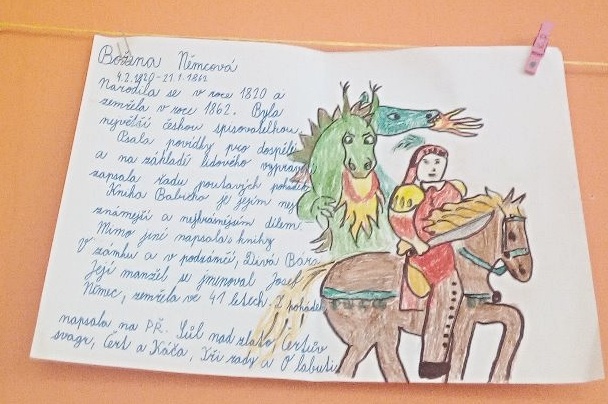 Božena Němcová
4.2.1820-21.1.1862
Narodila se v roce 1820 a
zemřela v roce 1862. Byla
největší českou spisovatelkou.
Psala povídky pro dospělé
a na základě lidového vyprávění
zapsala řadu poutavých pohádek.
Kniha Babička je jejím nej
známější a nejkrásnějším dílem.
Mimo jiné napsala knihy
V zámku a v podzámčí, Divá Bára.
Její manžel se jmenoval Josef
Němec, zemřela ve 41 letech. Z pohádek
napsala na PŘ. Sůl nad zlato, Čertův
švagr, Čert a Káča, Tři rady a O labuti